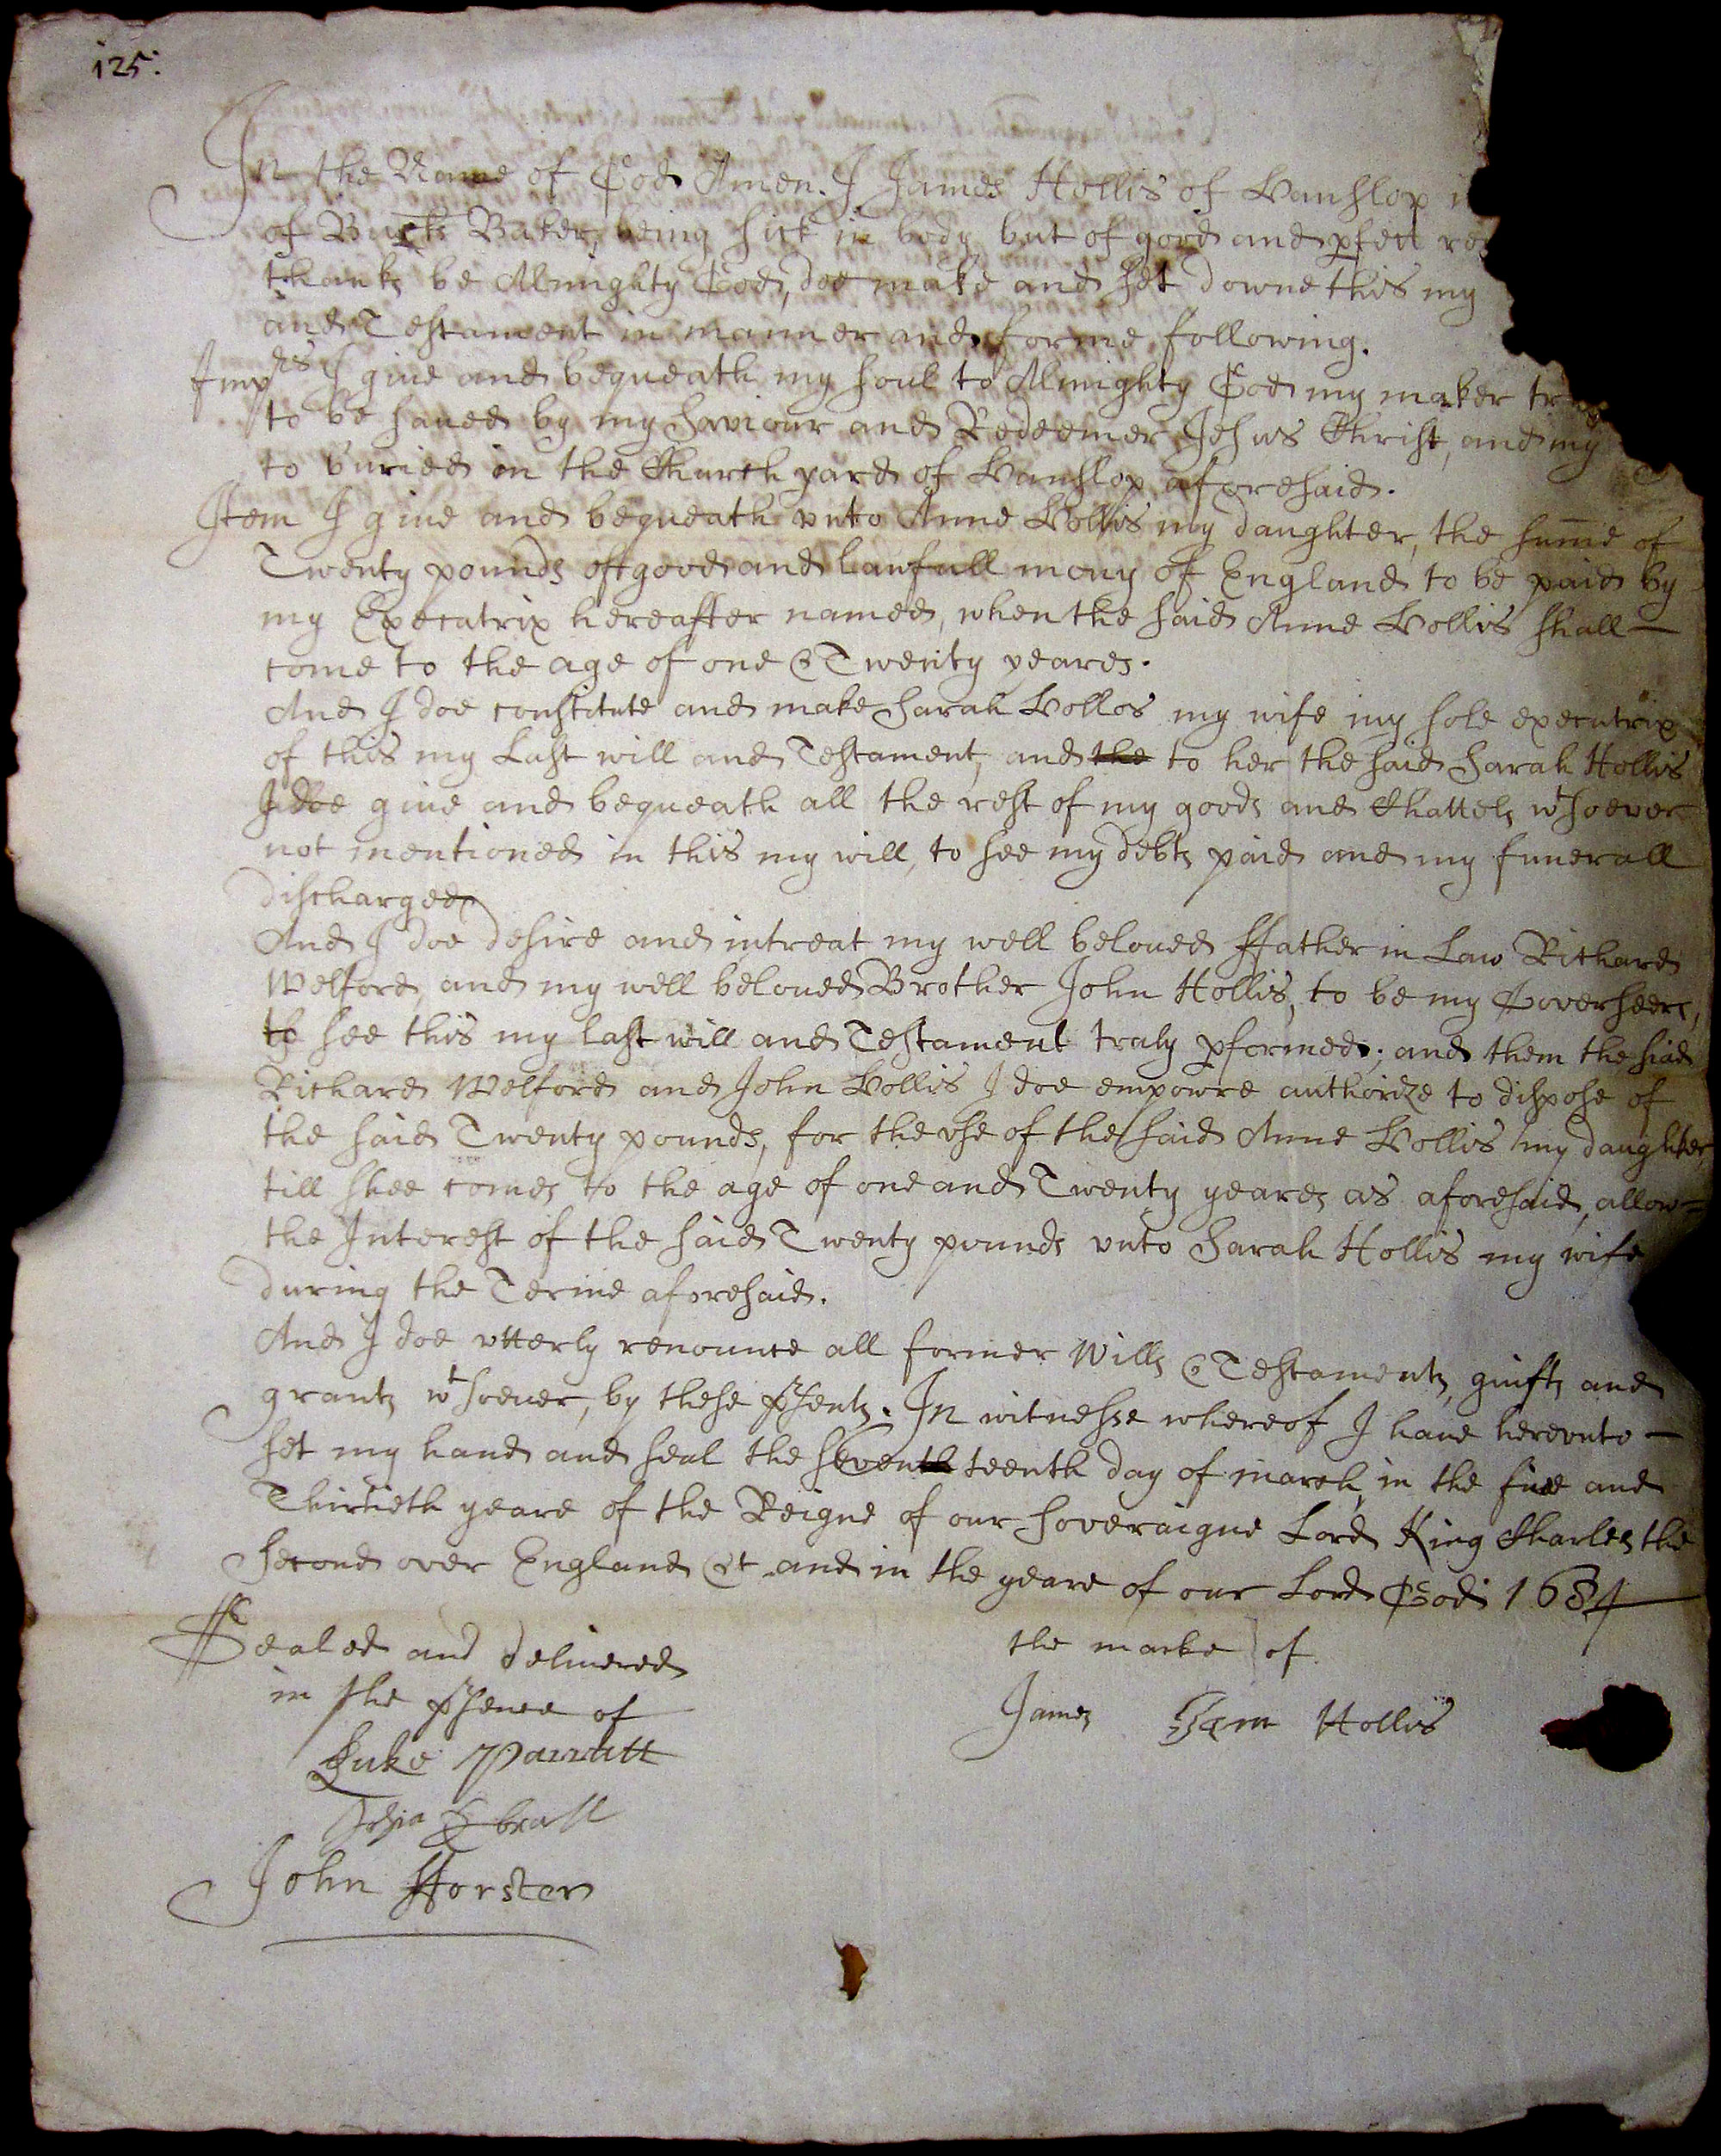 125:
In the Name of God Amen. I James Hollis of Hanslop
of Bucks Baker, being sick in body but of good and pfect
thanks be Almighty God, doe make and set downe this my
and Testament in manner and forme following.
Imprs I giue and bequeath my soul to Almighty God my maker
to be saued by my Saviour and Redeemer Jesus Christ, and my
to buried in the Church yard of Hanslop aforesaid.
Item I giue and bequeath vnto Anne Hollis my daughter, the sume of
Twenty pounds of good and lawfull mony of England to be paid by
my Execatrix hereafter named, when the said Anne Hollis shall
come to the age of one & Twenty yeares.
And I doe constitute and make Sarah Hollos my wife my sole executrix
of this my Last will and Testament, and the to her the said Sarah Hollis
I doe giue and bequeath all the rest of my goods and Chattels wtsoever
not mentioned in this my will, to see my debts paid and my funerall
discharged.
And I doe desire and intreat my well beloued ffather in Law Richard
Welford, and my well beloued Brother John Hollis, to be my Overseers,
to see this my last will and Testament truly pformed; and them the siad
Richard Welford and John Hollis I doe empowre authorize to dispose of
the said Twenty pounds, for the vse of the said Anne Hollis my daughter
till shee comes to the age of one and Twenty yeares as aforesaid, allow=
the Interest of the said Twenty pounds vnto Sarah Hollis my wife
during the Terme aforesaid.
And I doe vtterly renounce all former Wills & Testaments, guifts and
grants wtsoeuer, by these psents. In witnesse whereof I haue herevnto
set my hand and seal the seventh teenth day of march, in the fiue and
Thirtieth yeare of the Reigne of our soveraigne Lord King Charles the
second over England &t and in the yeare of our Lord God 1684
Sealed and deliuered
in the psence of
the marke of
James Hollis
Luke Parratt
John fforster